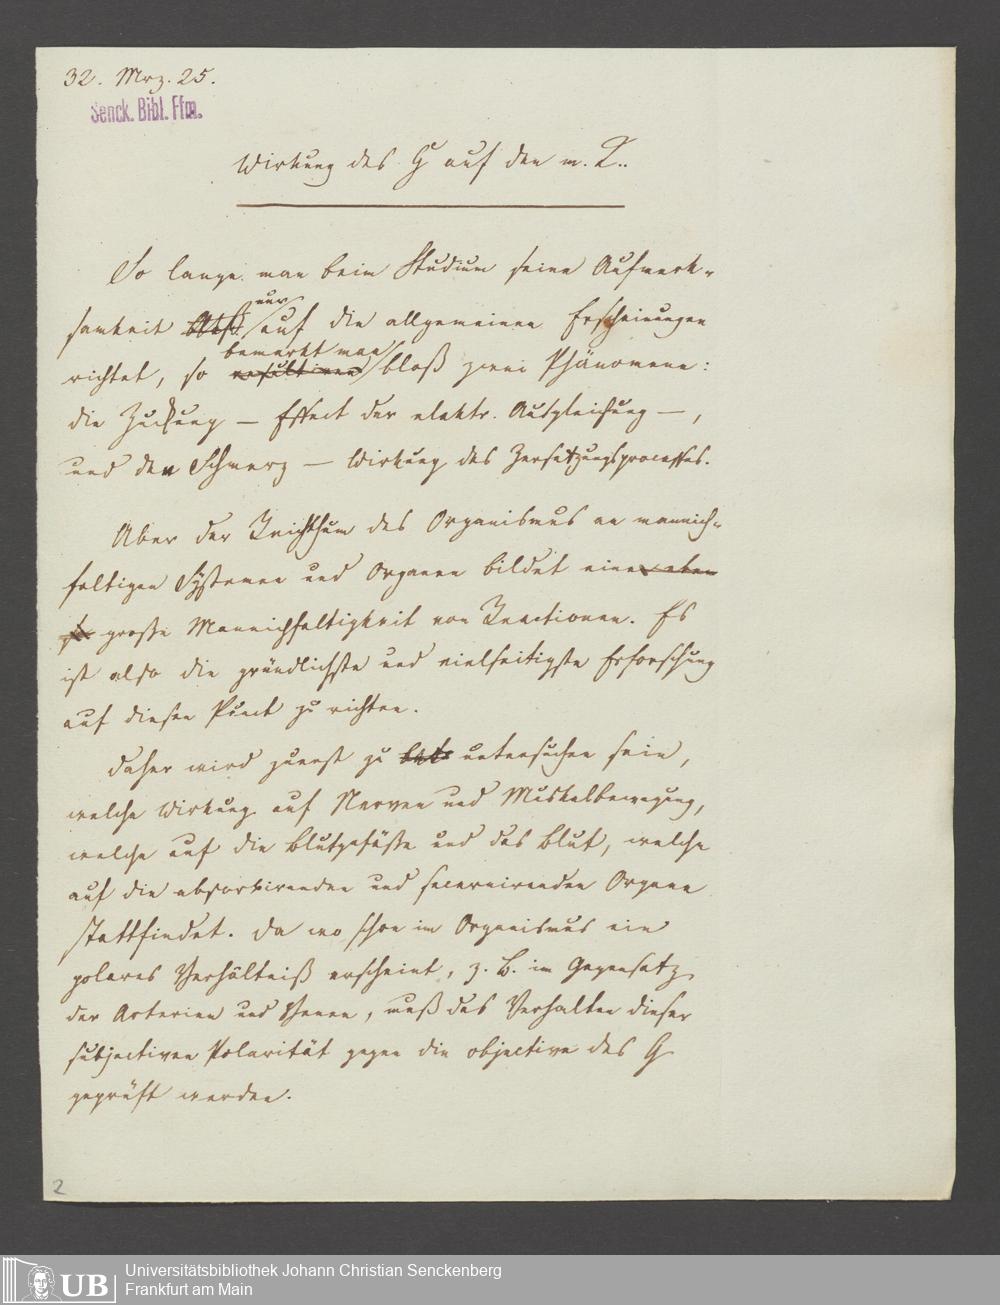 32. Mrz. 25.
Senck. Bibl. Ffm.
Wirkung des G auf den m. K..
So lange man beim Studium seine Aufmerk-
nur
samkeit auf die allgemeinen Erscheinungen
bemerkt man
richtet, so resultiren bloß zwei Phänomene:
die Zuckung — Effect der elektr. Ausgleichung —,
und den Schmerz — Wirkung des Zersetzungsprocesses.
Aber der Reichthum des Organismus an mannich-
faltigen Systemen und Organen bildet eine eben
so große Mannichfaltigkeit von Reactionen. Es
ist also die gründlichste und vielseitigste Erforschung
auf diesen Punct zu richten.
Daher wird zuerst zu untersuchen sein,
welche Wirkung auf Nerven und Muskelbewegung,
welche auf die Blutgefäße und das Blut, welche
auf die absorbirenden und secernirenden Organe
stattfindet. Da wo schon im Organismus ein
polares Verhältniß erscheint, z. B. im Gegensatz
der Arterien und Venen, muß das Verhalten dieser
subjectiven Polarität gegen die objective des G
geprüft werden.
2
UB
Universitätsbibliothek Johann Christian Senckenberg
Frankfurt am Main